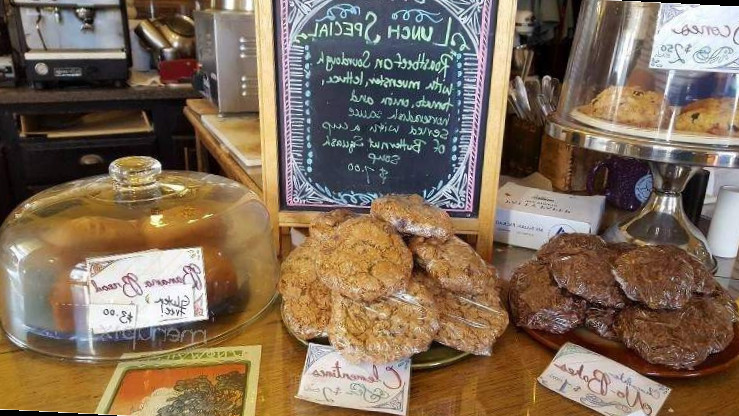 Lunch Special
Roastbeef on Sourdough
with muenster, lettuce,
tomato, onion and
horseradish sauce
served with a cup
of Butternut Squash
soup
$7.00
Scones
$2.50
Banana Bread
Gluten
Free!
$3.00
menupix
Clementines
No Bakes